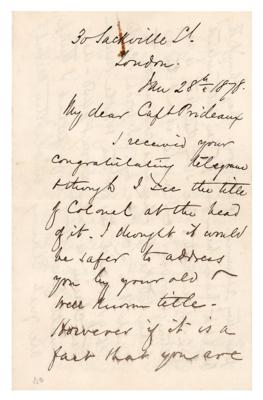 30 Sackville St.
London.
Jan 28th 1878.
My dear Capt Prideaux
I received your
congratulating telegram
& though I see the title
of Colonel at the head
of it. I thought it would
be safer to address
you by your old &
well known title -
However if it is a
fact that you are